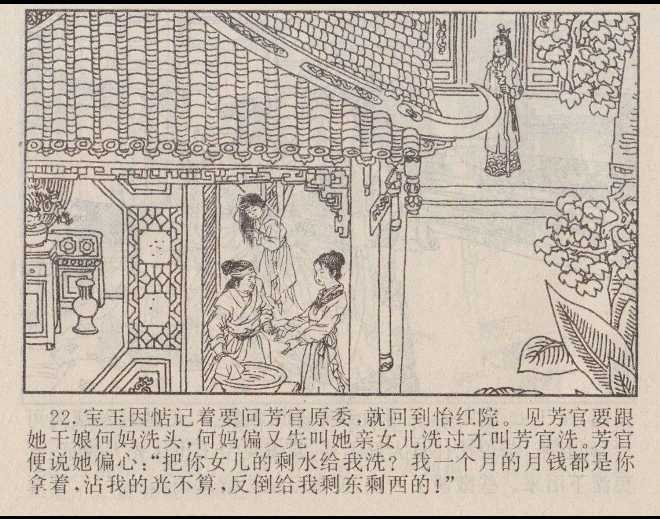 22. 宝玉因惦记着要问芳官原委，就回到怡红院。见芳官要跟
她干娘何妈洗头，何妈偏又先叫她亲女儿洗过才叫芳官洗。芳官
便说她偏心：“把你女儿的剩水给我洗？我一个月的月钱都是你
拿着，沾我的光不算，反倒给我剩东剩西的！”